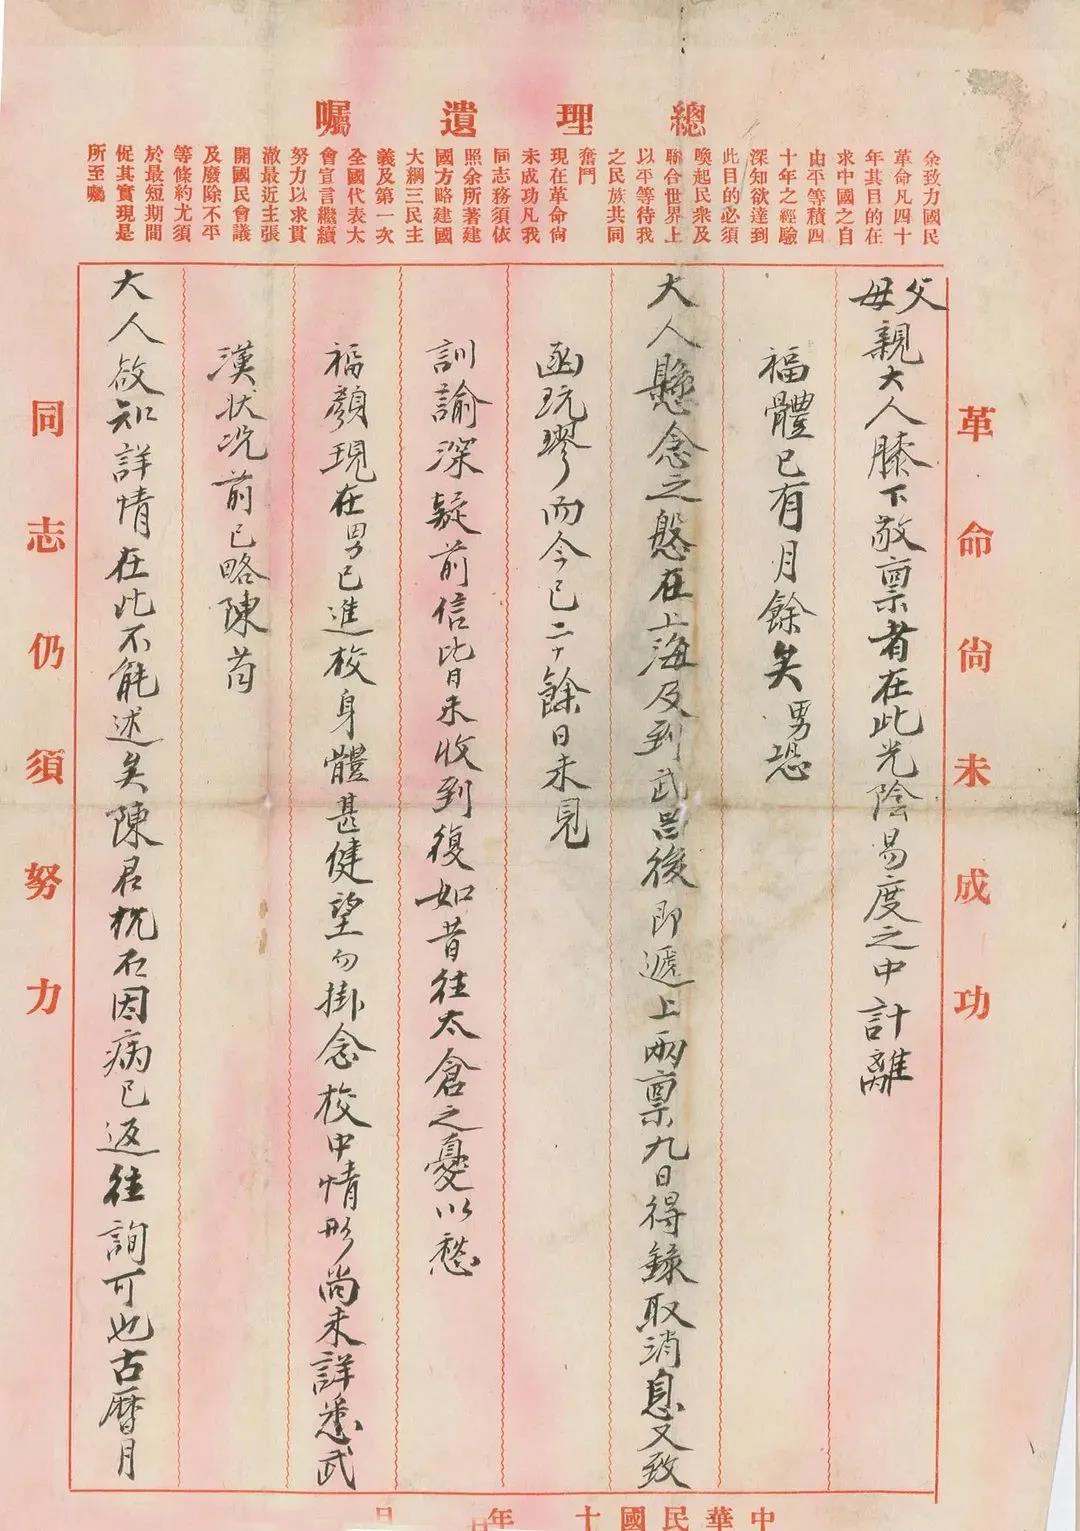 總理遺囑
余致力國民
革命凡四十
年其目的在
求中國之自
由平等積四
十年之經驗
深知欲達到
此目的必須
喚起民衆及
聯合世界上
以平等待我
之民族共同
奮鬥
現在革命尚
未成功凡我
同志務須依
照余所著建
國方略建國
大綱三民主
義及第一次
全國代表大
會宣言繼續
努力以求貫
澈最近主張
開國民會議
及廢除不平
等條約尤須
於最短期間
促其實現是
所至囑
革命尚未成功
父母親大人膝下敬稟者在此光陰易度之中計離
福體已有月餘矣男恐
大人懸念之慇在上海及到武昌後即遞上兩稟九日得錄取消息又致
函玩璆而今已二十餘日未見
訓諭深疑前信皆未收到復如昔往太倉之憂以愁
福顏現在男已進校身體甚健望勿掛念校中情形尚未詳悉武
漢狀况前已略陳苟
大人欲知詳情在此不能述矣陳君枕石因病已返往詢可也古曆月
同志仍須努力
中華民國十年 月 日